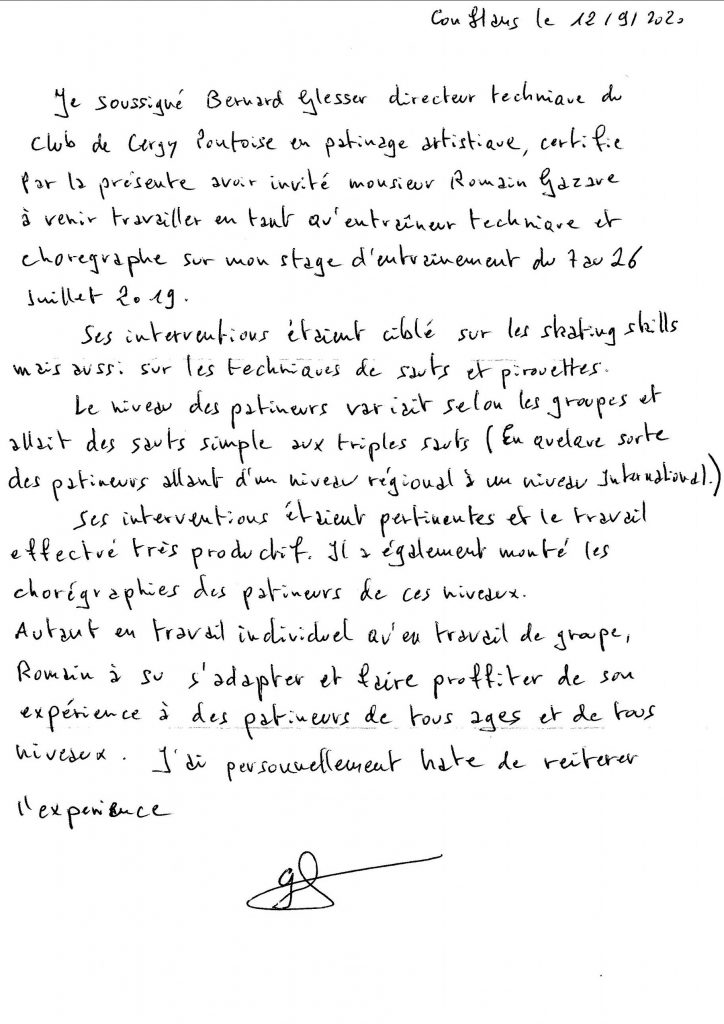 Conflans le 12/9/2020
Je soussigné Bernard Glesser directeur technique du
club de Cergy Pontoise en patinage artistique, certifie
par la présente avoir invité monsieur Romain Gazave
à venir travailler en tant qu'entraîneur technique et
choregraphe sur mon stage d'entrainement du 7 au 26
Juillet 2019.
Ses interventions étaient ciblé sur les skating skills
mais aussi sur les techniques de sauts et pirouettes.
Le niveau des patineurs variait selon les groupes et
allait des sauts simple aux triples sauts (En quelque sorte
des patineurs allant d'un niveau régional à un niveau International.)
Ses interventions étaient pertinentes et le travail
effectué très productif. Il a également monté les
chorégraphies des patineurs de ces niveaux.
Autant en travail individuel qu'en travail de groupe,
Romain à su s'adapter et faire proffiter de son
expérience à des patineurs de tous ages et de tous
niveaux. J'ai personnellement hate de reiterer
l'experience